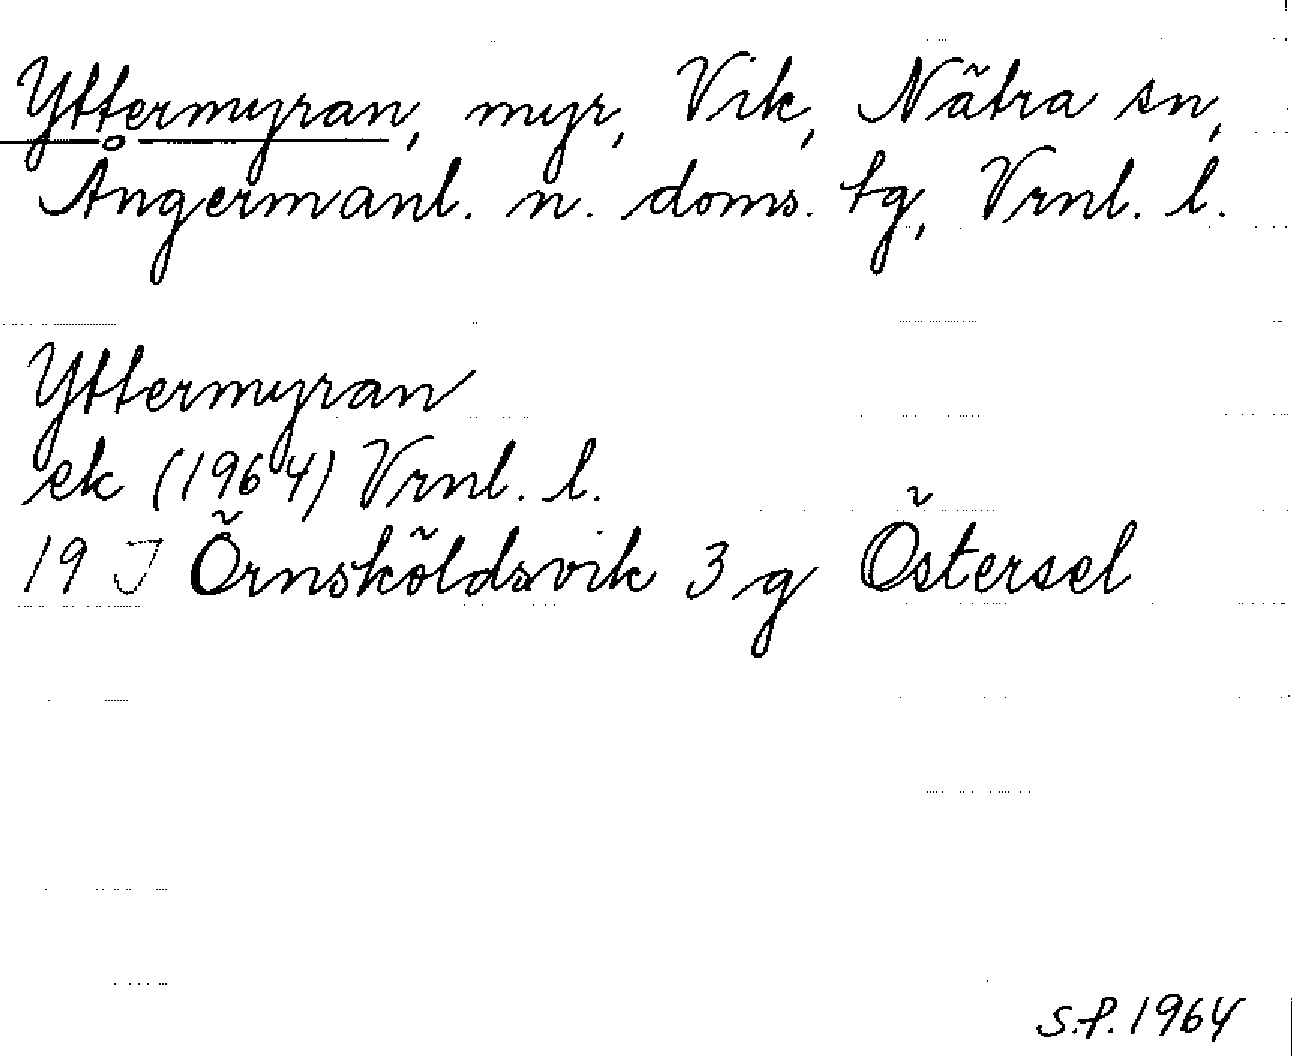 Yttermyran, myr, Vik, Nätra sn,
Ångermanl. n. doms. tg, Vrnl. l.
Yttermyran
ek (1964) Vrnl. l.
19 J Örnsköldsvik 3 g Östersel
S.P. 1964